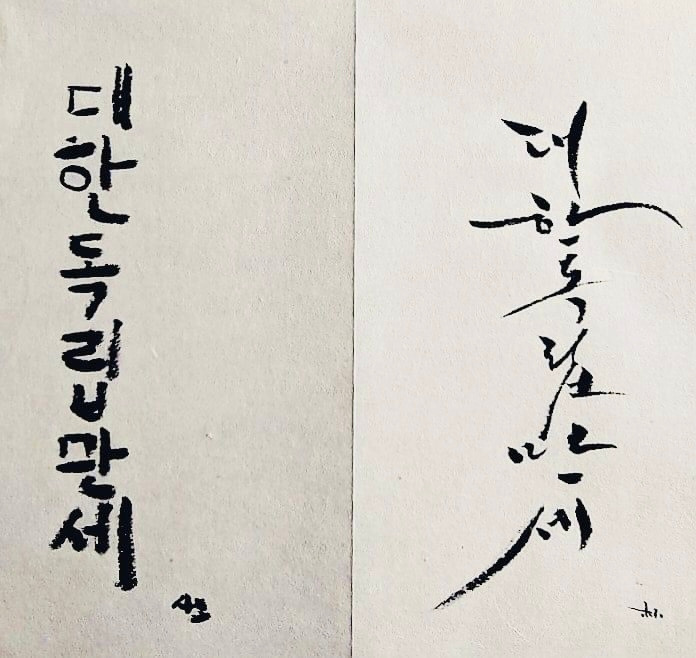 대한독립만세
대한독립만세